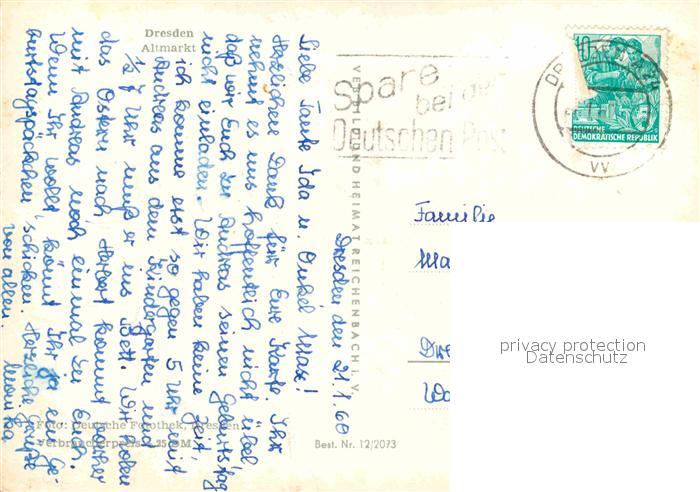 Dresden
Altmarkt
Dresden den 21.1.60
Liebe Tante Ida u. Onkel Max!
Herzlichen Dank für Eure Karte. Ihr
nehmt es uns hoffentlich nicht übel,
daß wir Euch zu Andreas seinen Geburtstag
nicht einladen. Wir haben keine Zeit,
ich komme erst so gegen 5 Uhr mit
Andreas aus dem Kindergarten und
½ 7 Uhr muß er ins Bett. Wir
das Ostern nach Herbert kommt
mit Andreas noch einmal zu Euch.
Wenn Ihr wollt könnt Ihr ja ein Ge-
burtstagspäckchen schicken. Herzliche Grüße
von allen.
Foto: Deutsche Fotothek, Dresden
Verbraucherpreis 0,25 DM
VERBILD UND HEIMAT REICHENBACH i. V.
Best. Nr. 12/2073
Spare
bei der
Deutschen Post
10
DEUTSCHE
DEMOKRATISCHE REPUBLIK
Familie
Ma
Dre
privacy protection
Datenschutz